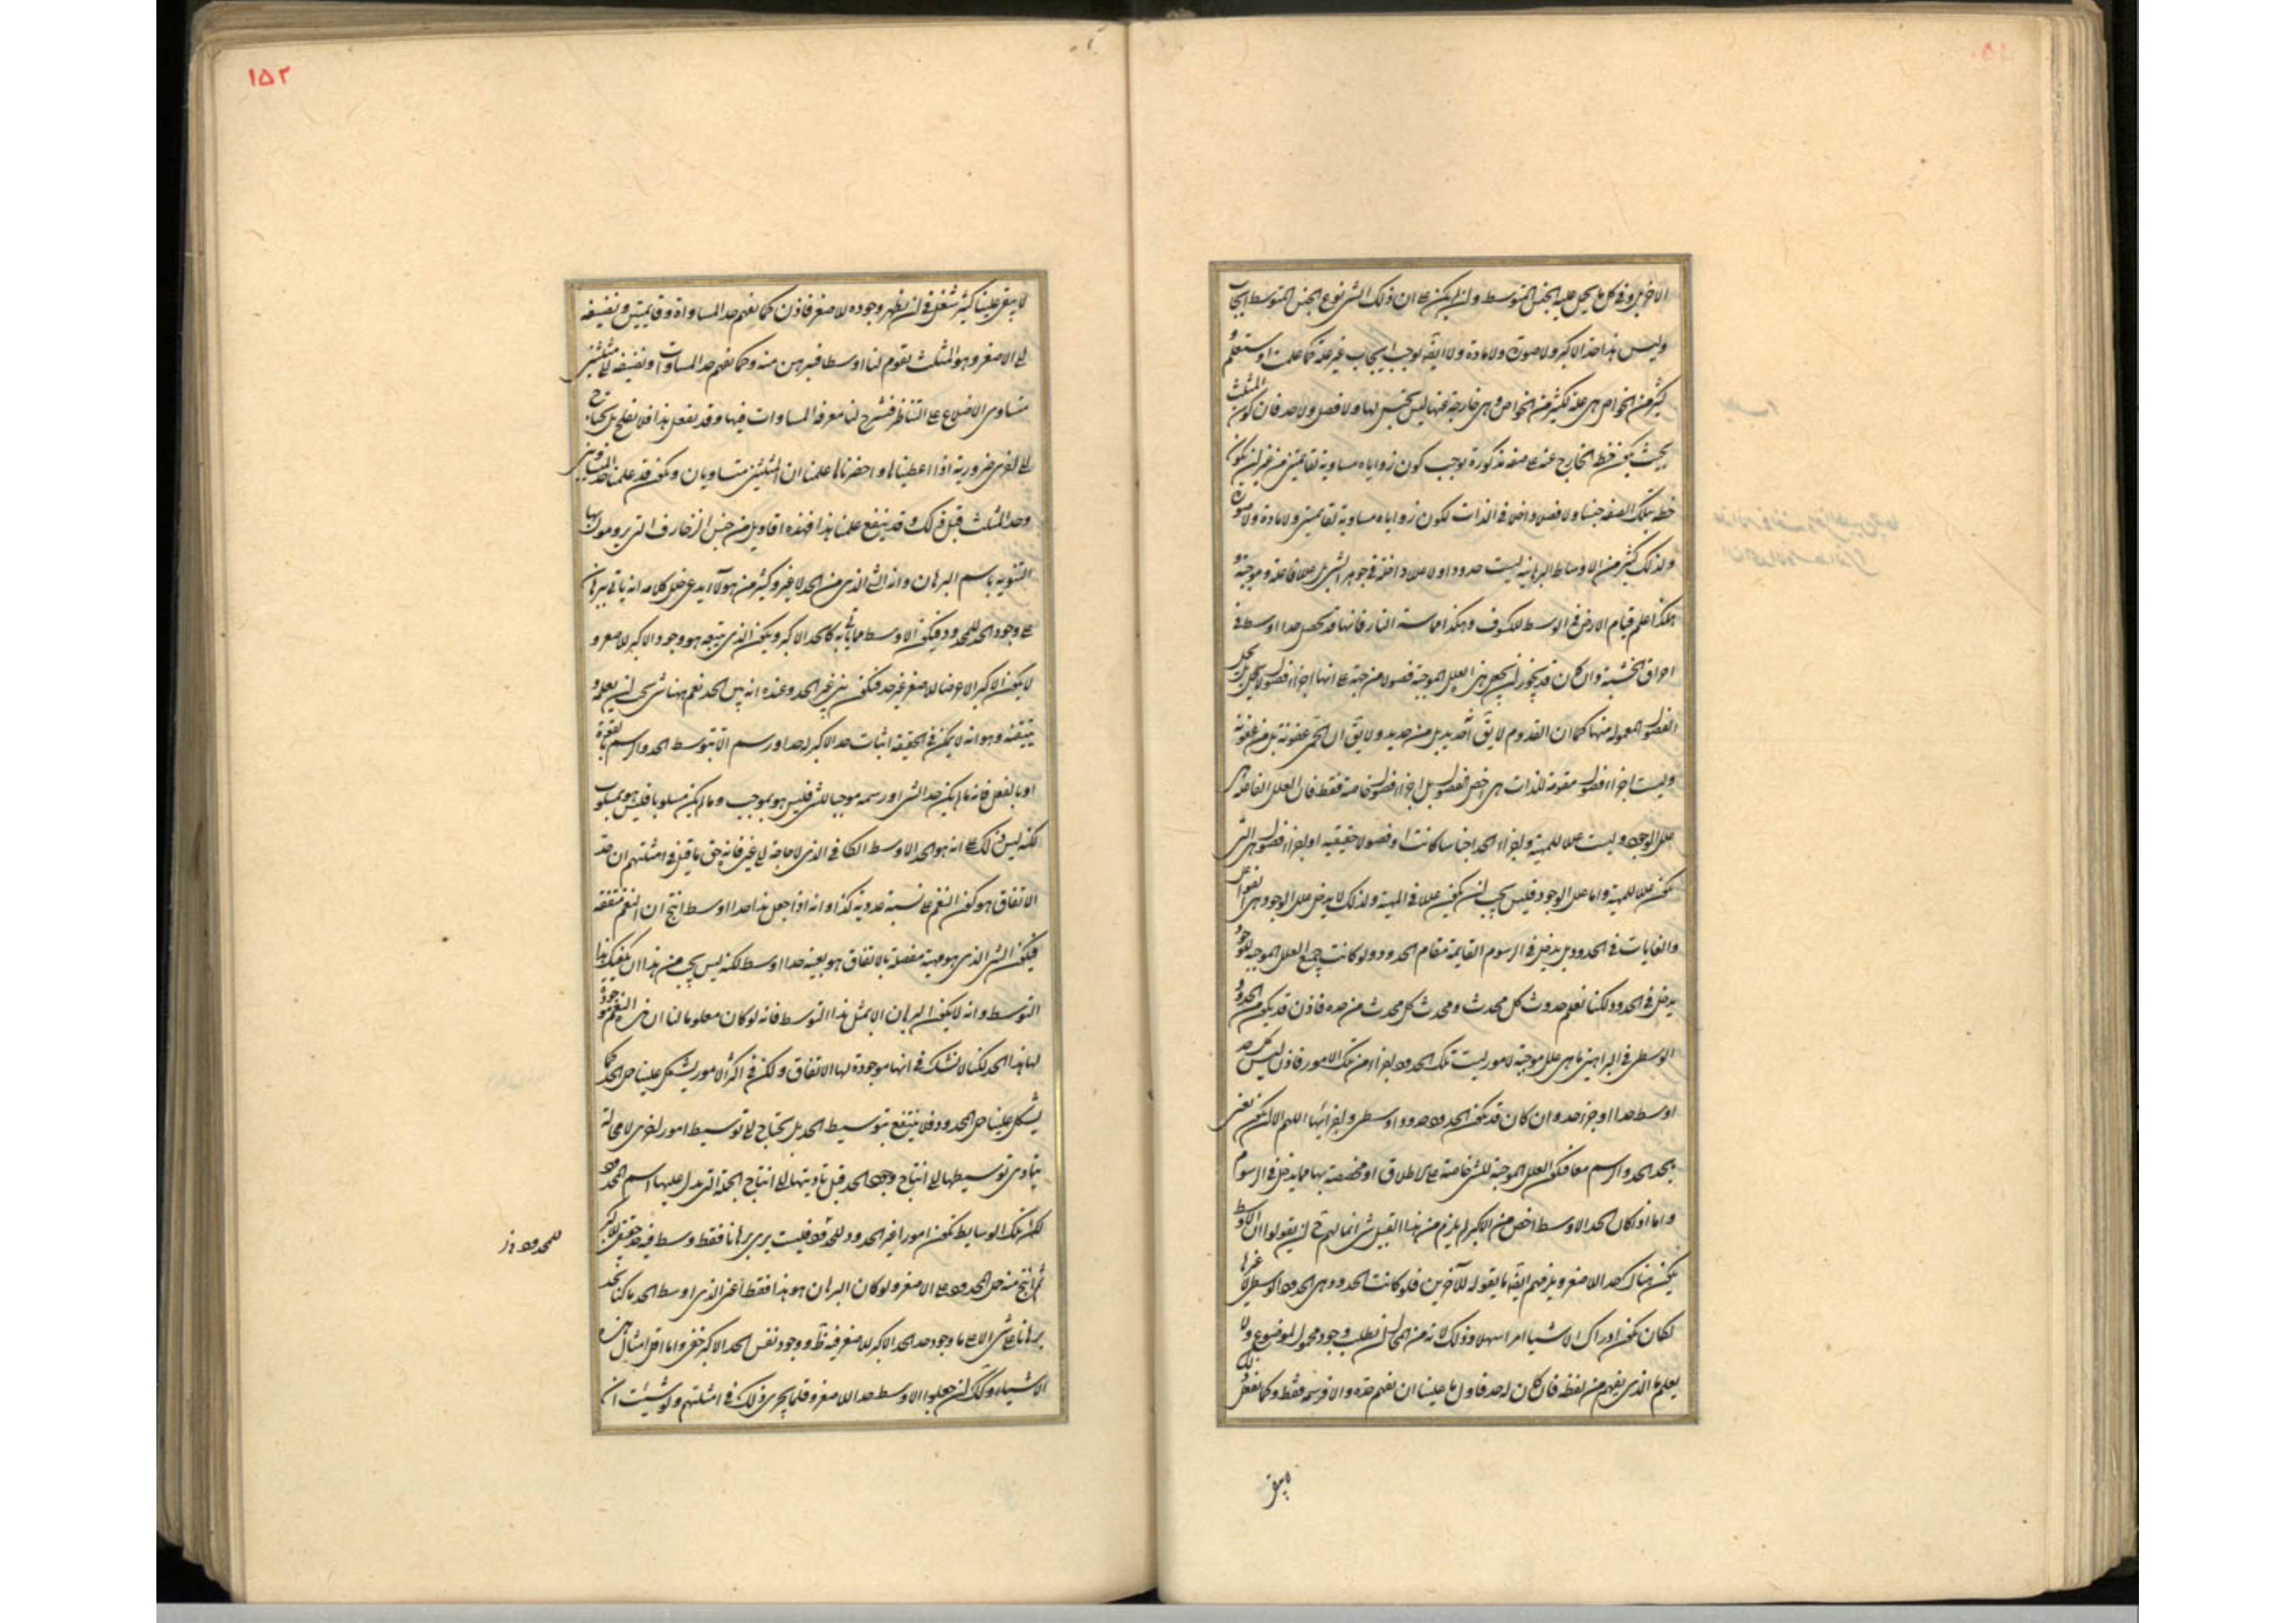 الاخر بل و فى كل ما يحمل عليه الجنس المتوسط و ان لم يكن على ان ذلك الشى نوع الجنس المتوسط ايجاب
و ليس هذا حد الاكبر و لا صورة و لا مادة و لا ايضا يوجب ايجاب غير علة كما علمت او ستعلم و
كثير من الخواص هى علة لكثير من الخواص و هى خارجة عنها ليس بجنس لها و لا فصل و لا حد فان كون المثلث
بحيث يكون خط الخارج عنه على صفة مذكورة يوجب كون زواياه مساوية لقائمتين من غير ان يكون
خطه بتلك الصفة جنسا و لا فصلا داخلا فى الذات لكون زواياه مساوية لقائمتين و لا مادة و لا صورة
و لذلك كثير من الاوساط البرهانية ليست حدودا و لا عللا داخلة فى جوهر الشى بل عللا فاعلة و موجبة و
هكذا علم قيام الارض فى الوسط للكسوف و هكذا مماسة النار فانها قد تجعل حدا اوسط فى
احراق الخشبة و ان كان قد يجوز ان يجعل هذه العلل الموجبة فصولا من جهة على انها اجزاء فصول لا تحمل بل تحمل
الفصول المعمولة منها كما ان القدوم لا يق انه حديد بل من حديد و لا يق ان الحمى عفونة بل من عفونة
و ليست اجزاء فصول مقومة للذات هى اخص الفصول بل اجزاء فصول خاصة فقط فان العلل الفاعلة هى
علل الوجود و ليست عللا للمهية و اجزاء الحد اجناسا كانت او فصولا حقيقية او اجزاء فصول هى التى
تكون عللا للمهية و اما علل الوجود فليس يجب ان يكون عللا فى المهية و لذلك لا يدخل علل الوجود هى الفواعل
و الغايات فى الحدود بل يدخل فى الرسوم القايمة مقام الحدود و لو كانت جميع العلل الموجبة للوجود
يدخل فى الحدود لكنا نعلم حدوث كل محدث و محدث كل محدث من حده فاذن قد يكون من الحدود و
الوسطى فى البراهين ما هى علل موجبة لامور ليست تلك الحدود اجزاء من تلك الامور فاذن ليس كل حد
اوسط حدا او جزء حد و ان كان قد يكون الحدود حدودا وسطى و اجزائها اللهم الا ان يكون نعنى
بالحد الحد و الرسم معا فيكون العلل الموجبة للشى خاصة على الاطلاق او مخصصة بها مما يدخل فى الرسوم
و اما اذا كان الحد الاوسط اخص من الاكبر لم يلزم من هذا القبيل شى انما لهم ح ان يقولوا ان الاوسط
يكون هناك حد الاصغر و يلزمهم ايضا ما يقوله للآخرين فلو كانت الحدود هى الحدود الوسطى لا غيرها
لكان يكون ادراك الاشيا امرا سهلا و ذلك لانه من المحال ان نطلب وجود محمول لموضوع و لا
يعلم ما الذى يفهم من لفظه فان كان له حد فاول ما علينا ان نفهم حده و الا فرسمه فقط و كما نفعل ذلك
لا يبقى
لا يبقى علينا كثير شغل فى ان يظهر وجوده للاصغر فاذن كما نفهم حد المساواة و قائمتين و نضيفه
الى الاصغر و هو المثلث يقوم لنا اوسط فبرهن منه و كما نفهم حد المساوات و نضيفه الى مثلثين
متساوى الاضلاع على التناظر فتشرح لنا معرفة المساوات فيها و قد نفعل هذا فلا نفلح بل نحتاج
الى اخرى ضرورية اذا اعطيناها و احضرناها علمنا ان المثلثين متساويان و نكون قد علمنا حد المساويين
و حد المثلث قبل ذلك و قد ينفع علمنا هذا فهذه اقاويل من جنس الزخارف التى يرومون بها
التنويه باسم البرهان و انه الشى الذى من الحد لا غير و كثير من هولآء يدعى خلل كلامه انه ياتى ببرهان
على وجود الحد للمحدود فيكون الاوسط مما ياتى به كالحد الاكبر و يكون الذى ينتجه هو وجود الاكبر للاصغر و
لا يكون الاكبر الا عرضا للاصغر غير حد فيكون بين غير الحد و عنده انه بين الحد نعم ههنا شى يجب ان يعلم و
يتيقنه و هو انه لا يمكن فى الحقيقة اثبات حد الاكبر لحد او رسم الا بتوسط الحد و الرسم بالقوة
او بالفعل فانه ما لم يكن حد الشى او رسمه موجبا للشى فليس هو بموجب و ما لم يكن مسلوبا فليس هو بمسلوب
لكنه ليس ذلك على انه هو الحد الاوسط الكافى الذى لا حاجة الى غيره فانه حق ما قيل فى امثلتهم ان حد
الاتفاق هو كون النغم على نسبة عددية كذا و انه اذا جعل هذا حدا اوسط انتج ان النغم متفقة
فيكون الشى الذى هو مهية مفصلة بالاتفاق هو بعينه حدا اوسط لكنه ليس يجب من هذا ان يكفيك هذا
التوسط و انه لا يكون البرهان الا بمثل هذا التوسط فانه لو كان معلوما لنا ان هذه النغم موجودة
لها هذا الحد لكنا لا نشك فى انها موجودة لها الاتفاق و لكن فى اكثر الامور يشكل علينا حال الحد كما
يشكل علينا حال المحدود فلا ينتفع بتوسيط الحد بل يحتاج الى توسيط امور اخرى لا محالة
يتادى توسيطها الى انتاج وجود الحد قبل تاديتها الى انتاج الجملة التى يدل عليها اسم المحدود
لكن تلك الوسايط تكون امورا غير الحدود للمحدود فليست يرى برهانا فقط وسط فيه حد حقيقى للاكبر
ثم انتج منه حال المحدود على الاصغر و لو كان البرهان هو هذا فقط اعنى الذى اوسطه الحد ما كنا نجد
برهانا على شى الا على ما وجود حد الحد الاكبر للاصغر فيه ظ و وجود نفس الحد الاكبر خفى و ما اقل امثال هذه
الاشياء و كك ان جعلوا الاوسط حدا للاصغر و قلما يجرى ذلك فى امثلتهم و لو شئت ان
للمحدود
١٥٢